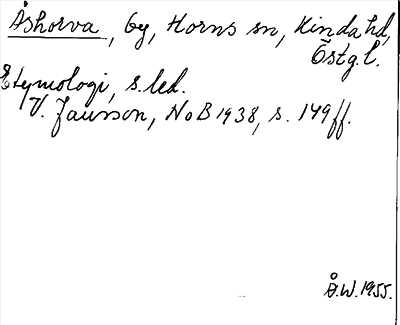 Åshorva, by, Horns sn, Kinda hd,
Östg.l.
Etymologi, s.led.
V. Jansson, NoB 1938, s. 149 ff.
Å.W. 1955.